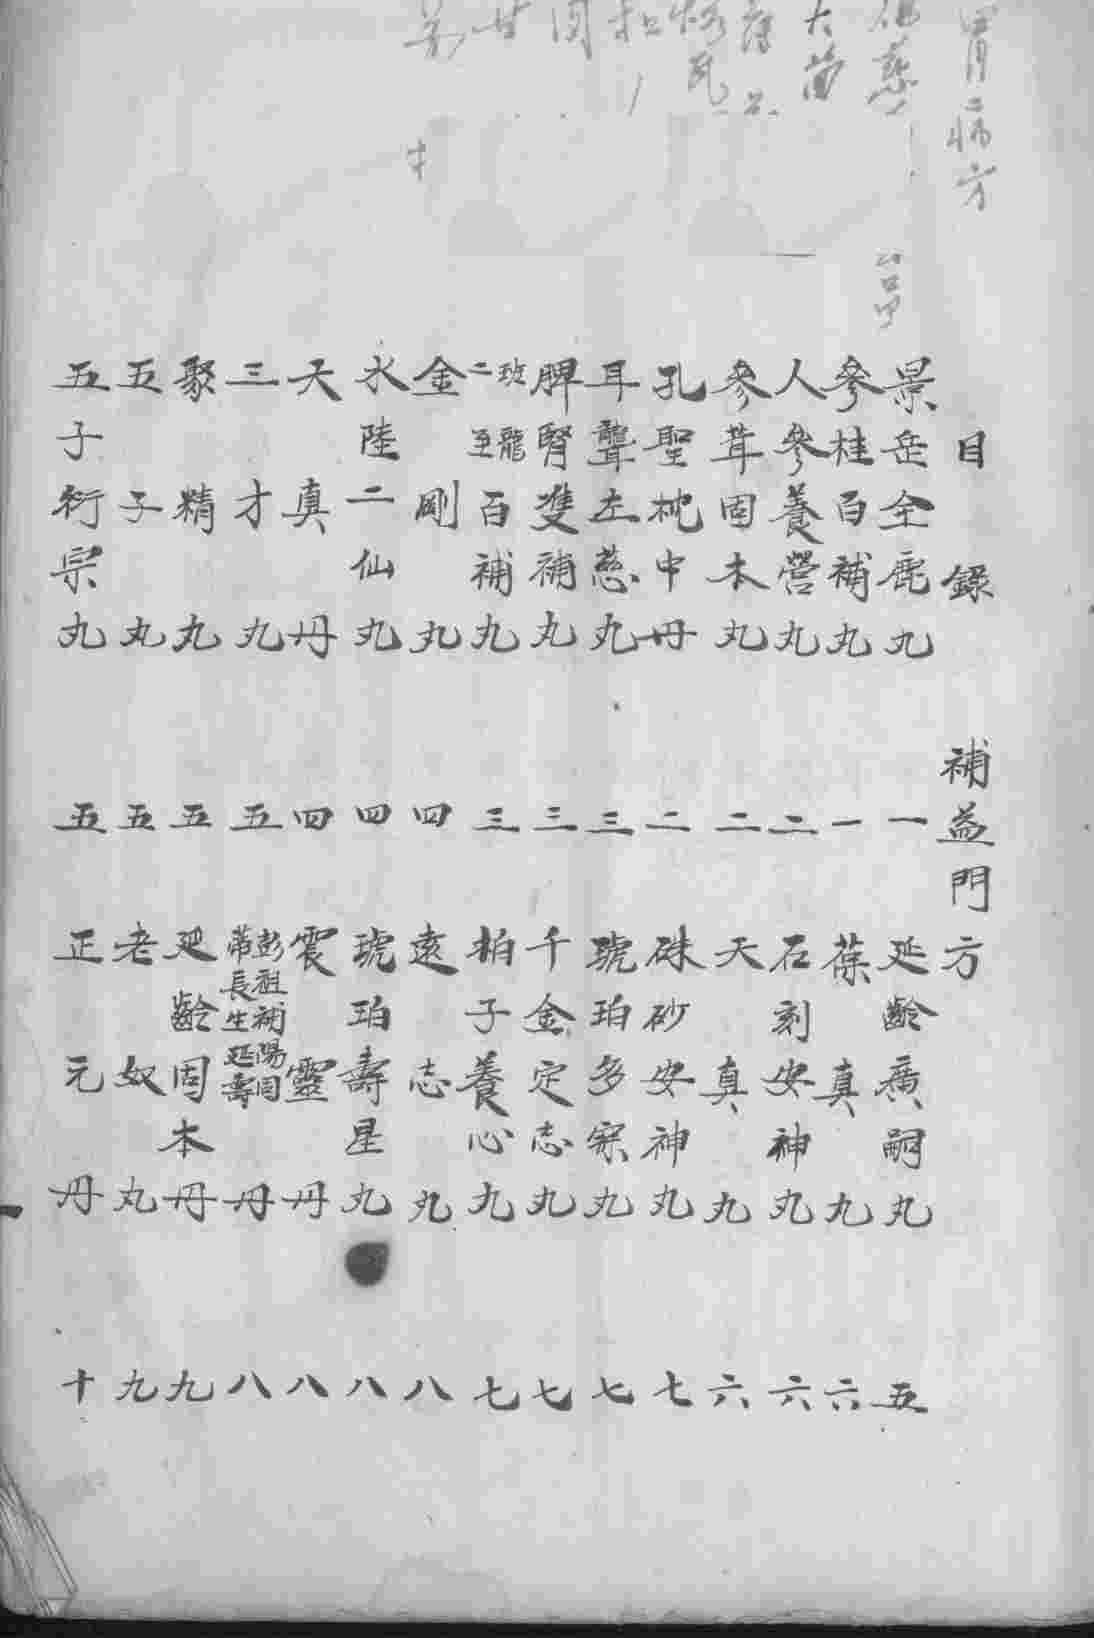 胃病方
目錄 補益門方
景岳全鹿丸 一 延齡廣嗣丸 五
參桂百補丸 一 葆真丸 六
人參養營丸 二 石刻安神丸 六
參茸固本丸 二 天真丸 六
孔聖枕中丹 二 硃砂安神丸 七
耳聾左慈丸 三 琥珀多寐丸 七
脾腎雙補丸 三 千金定志丸 七
班龍二至百補丸 三 柏子養心丸 七
金剛丸 四 遠志丸 八
水陸二仙丸 四 琥珀壽星丸 八
天真丹 四 震靈丹 八
三才丸 五 彭祖補陽固蒂長生延壽丹 八
聚精丸 五 延齡固本丹 九
五子丸 五 老奴丸 九
五子衍宗丸 五 正元丹 十